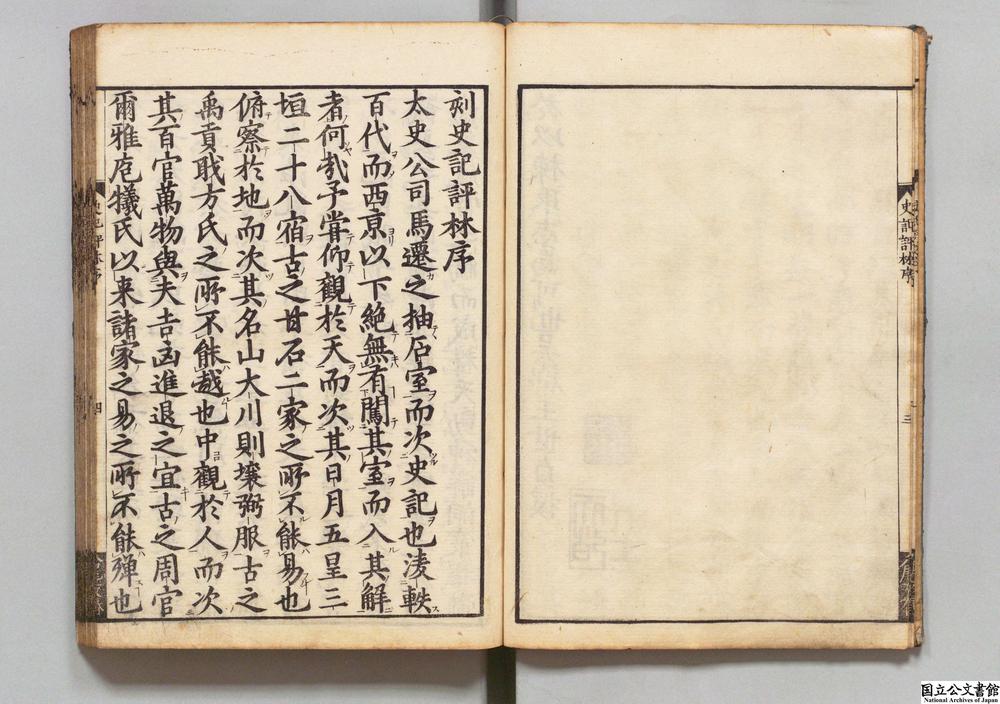 史記評林序
三
刻史記評林序
太史公司馬遷之抽石室而次史記也淩軼
百代而西京以下絶無有闖其室而入其解
者何哉予嘗仰觀於天而次其日月五星三
垣二十八宿古之甘石二家之所不能易也
俯察於地而次其名山大川則壤弼服古之
禹貢職方氏之所不能越也中觀於人而次
其百官萬物與夫吉凶進退之宜古之周官
爾雅庖犧氏以来諸家之易之所不能殫也
四
国立公文書館
National Archives of Japan